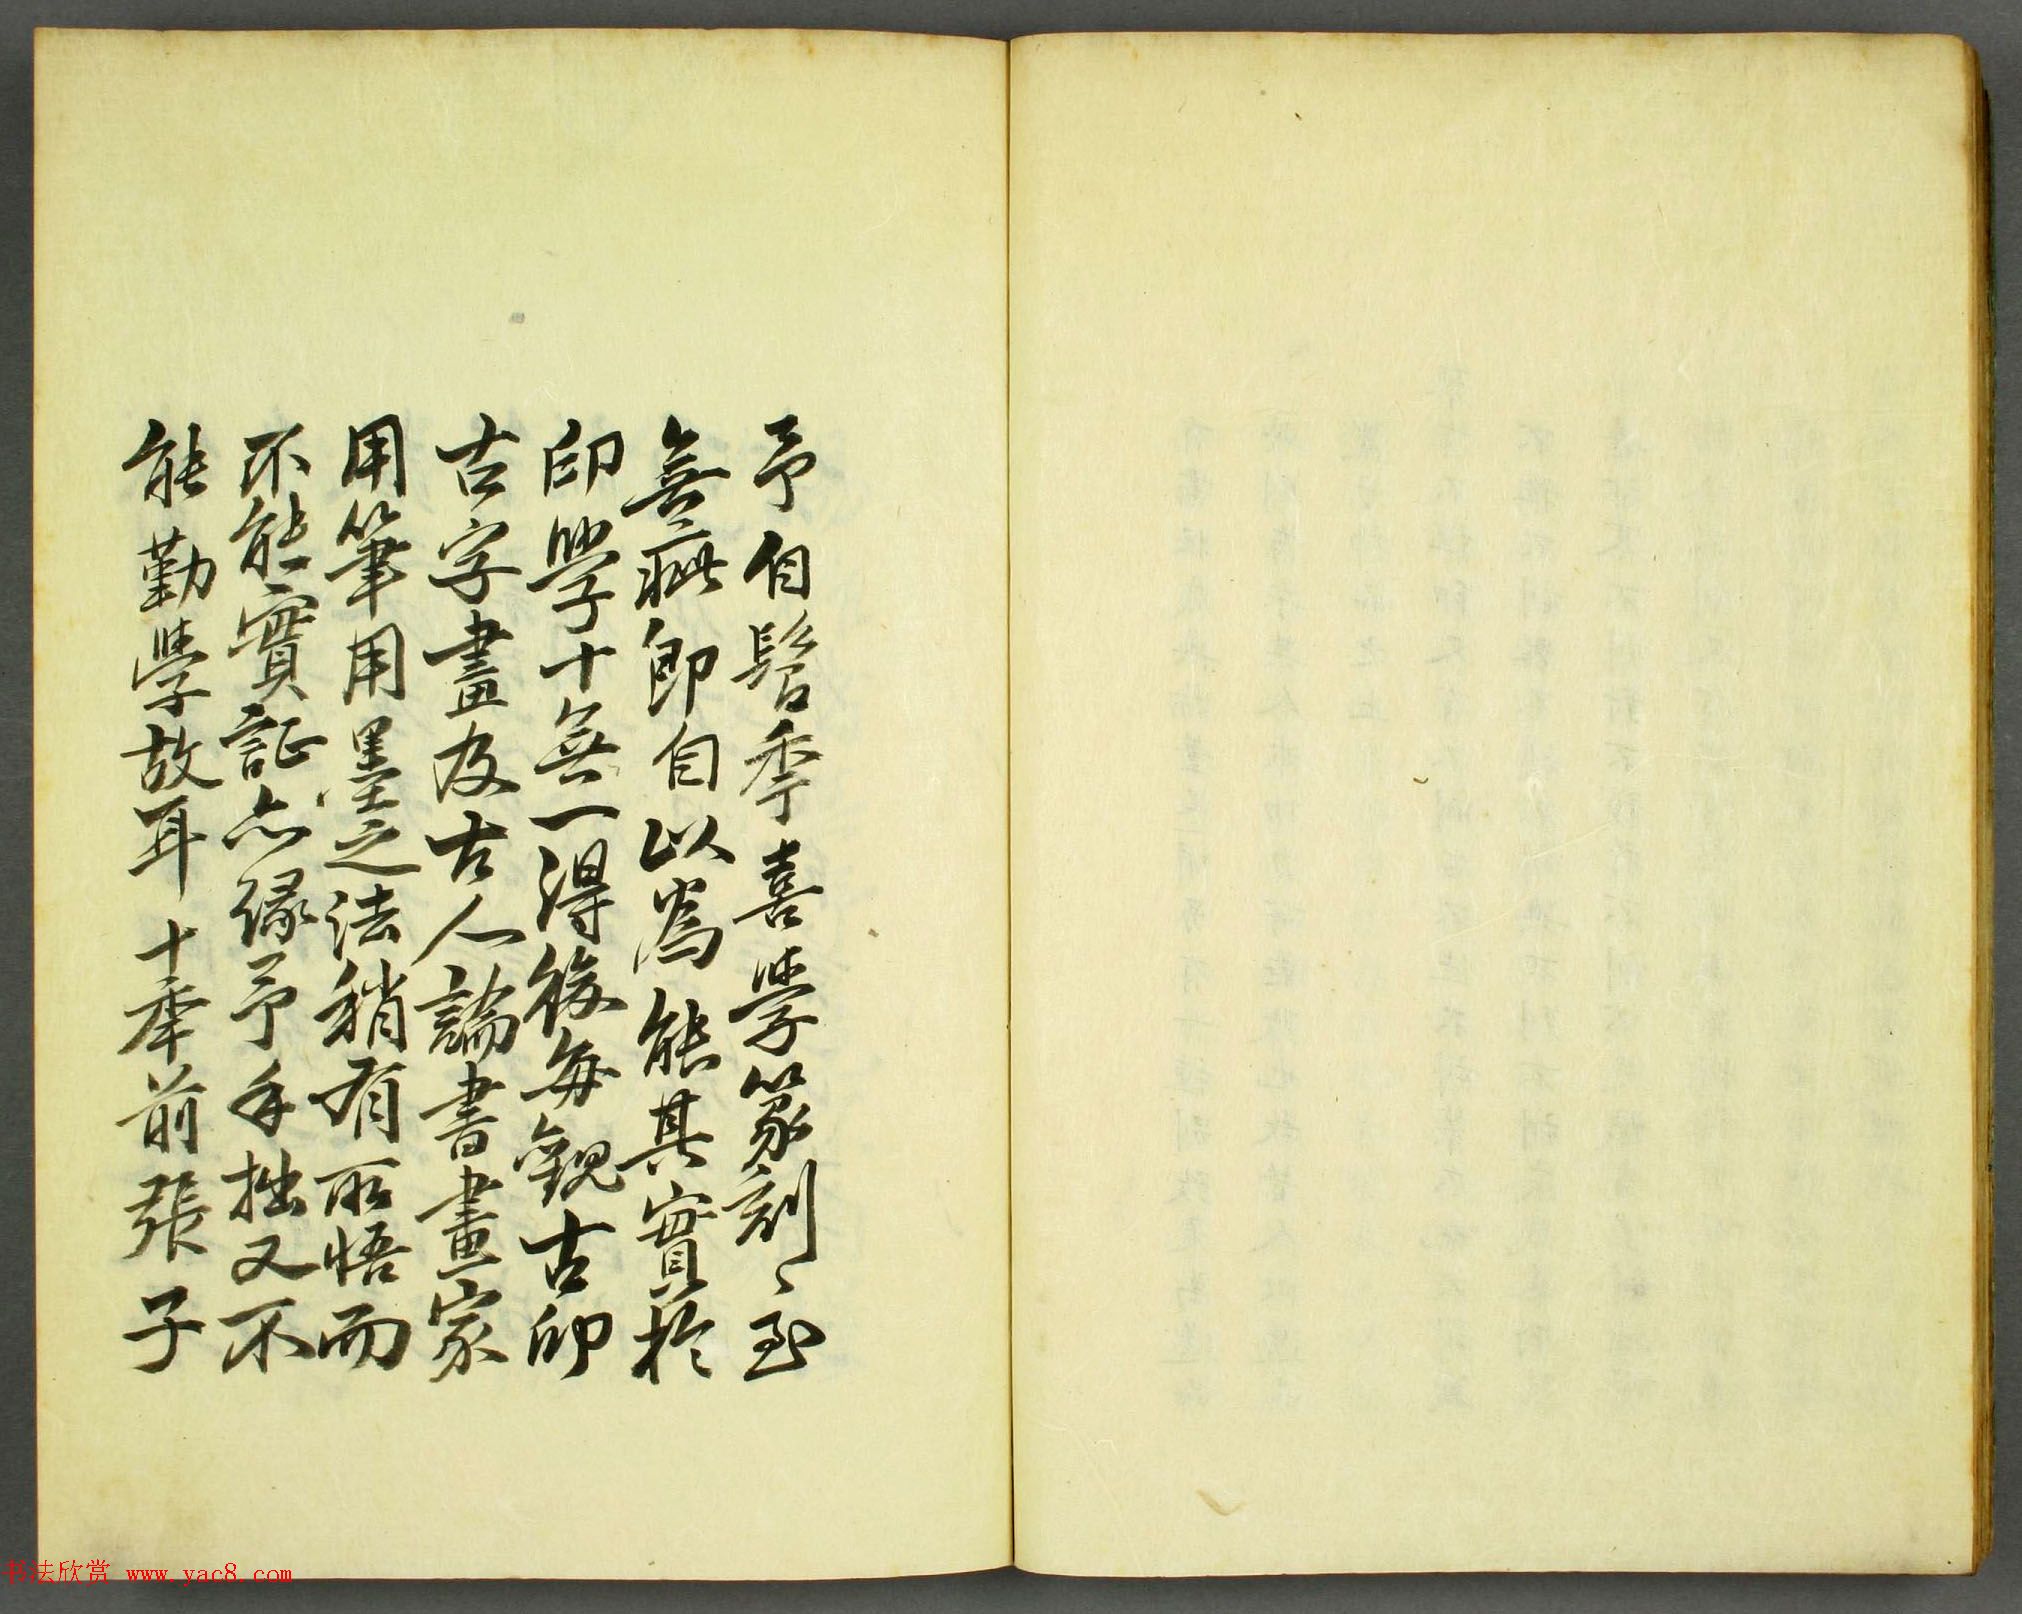 予自髫年喜學篆刻〻至
無疵即自以為能其實於
印學十無一得後每觀古印
古字畫及古人論書畫家
用筆用墨之法稍有所悟而
不能實証亦緣予手拙又不
能勤學故耳十年前張子
书法欣赏 www.yac8.com